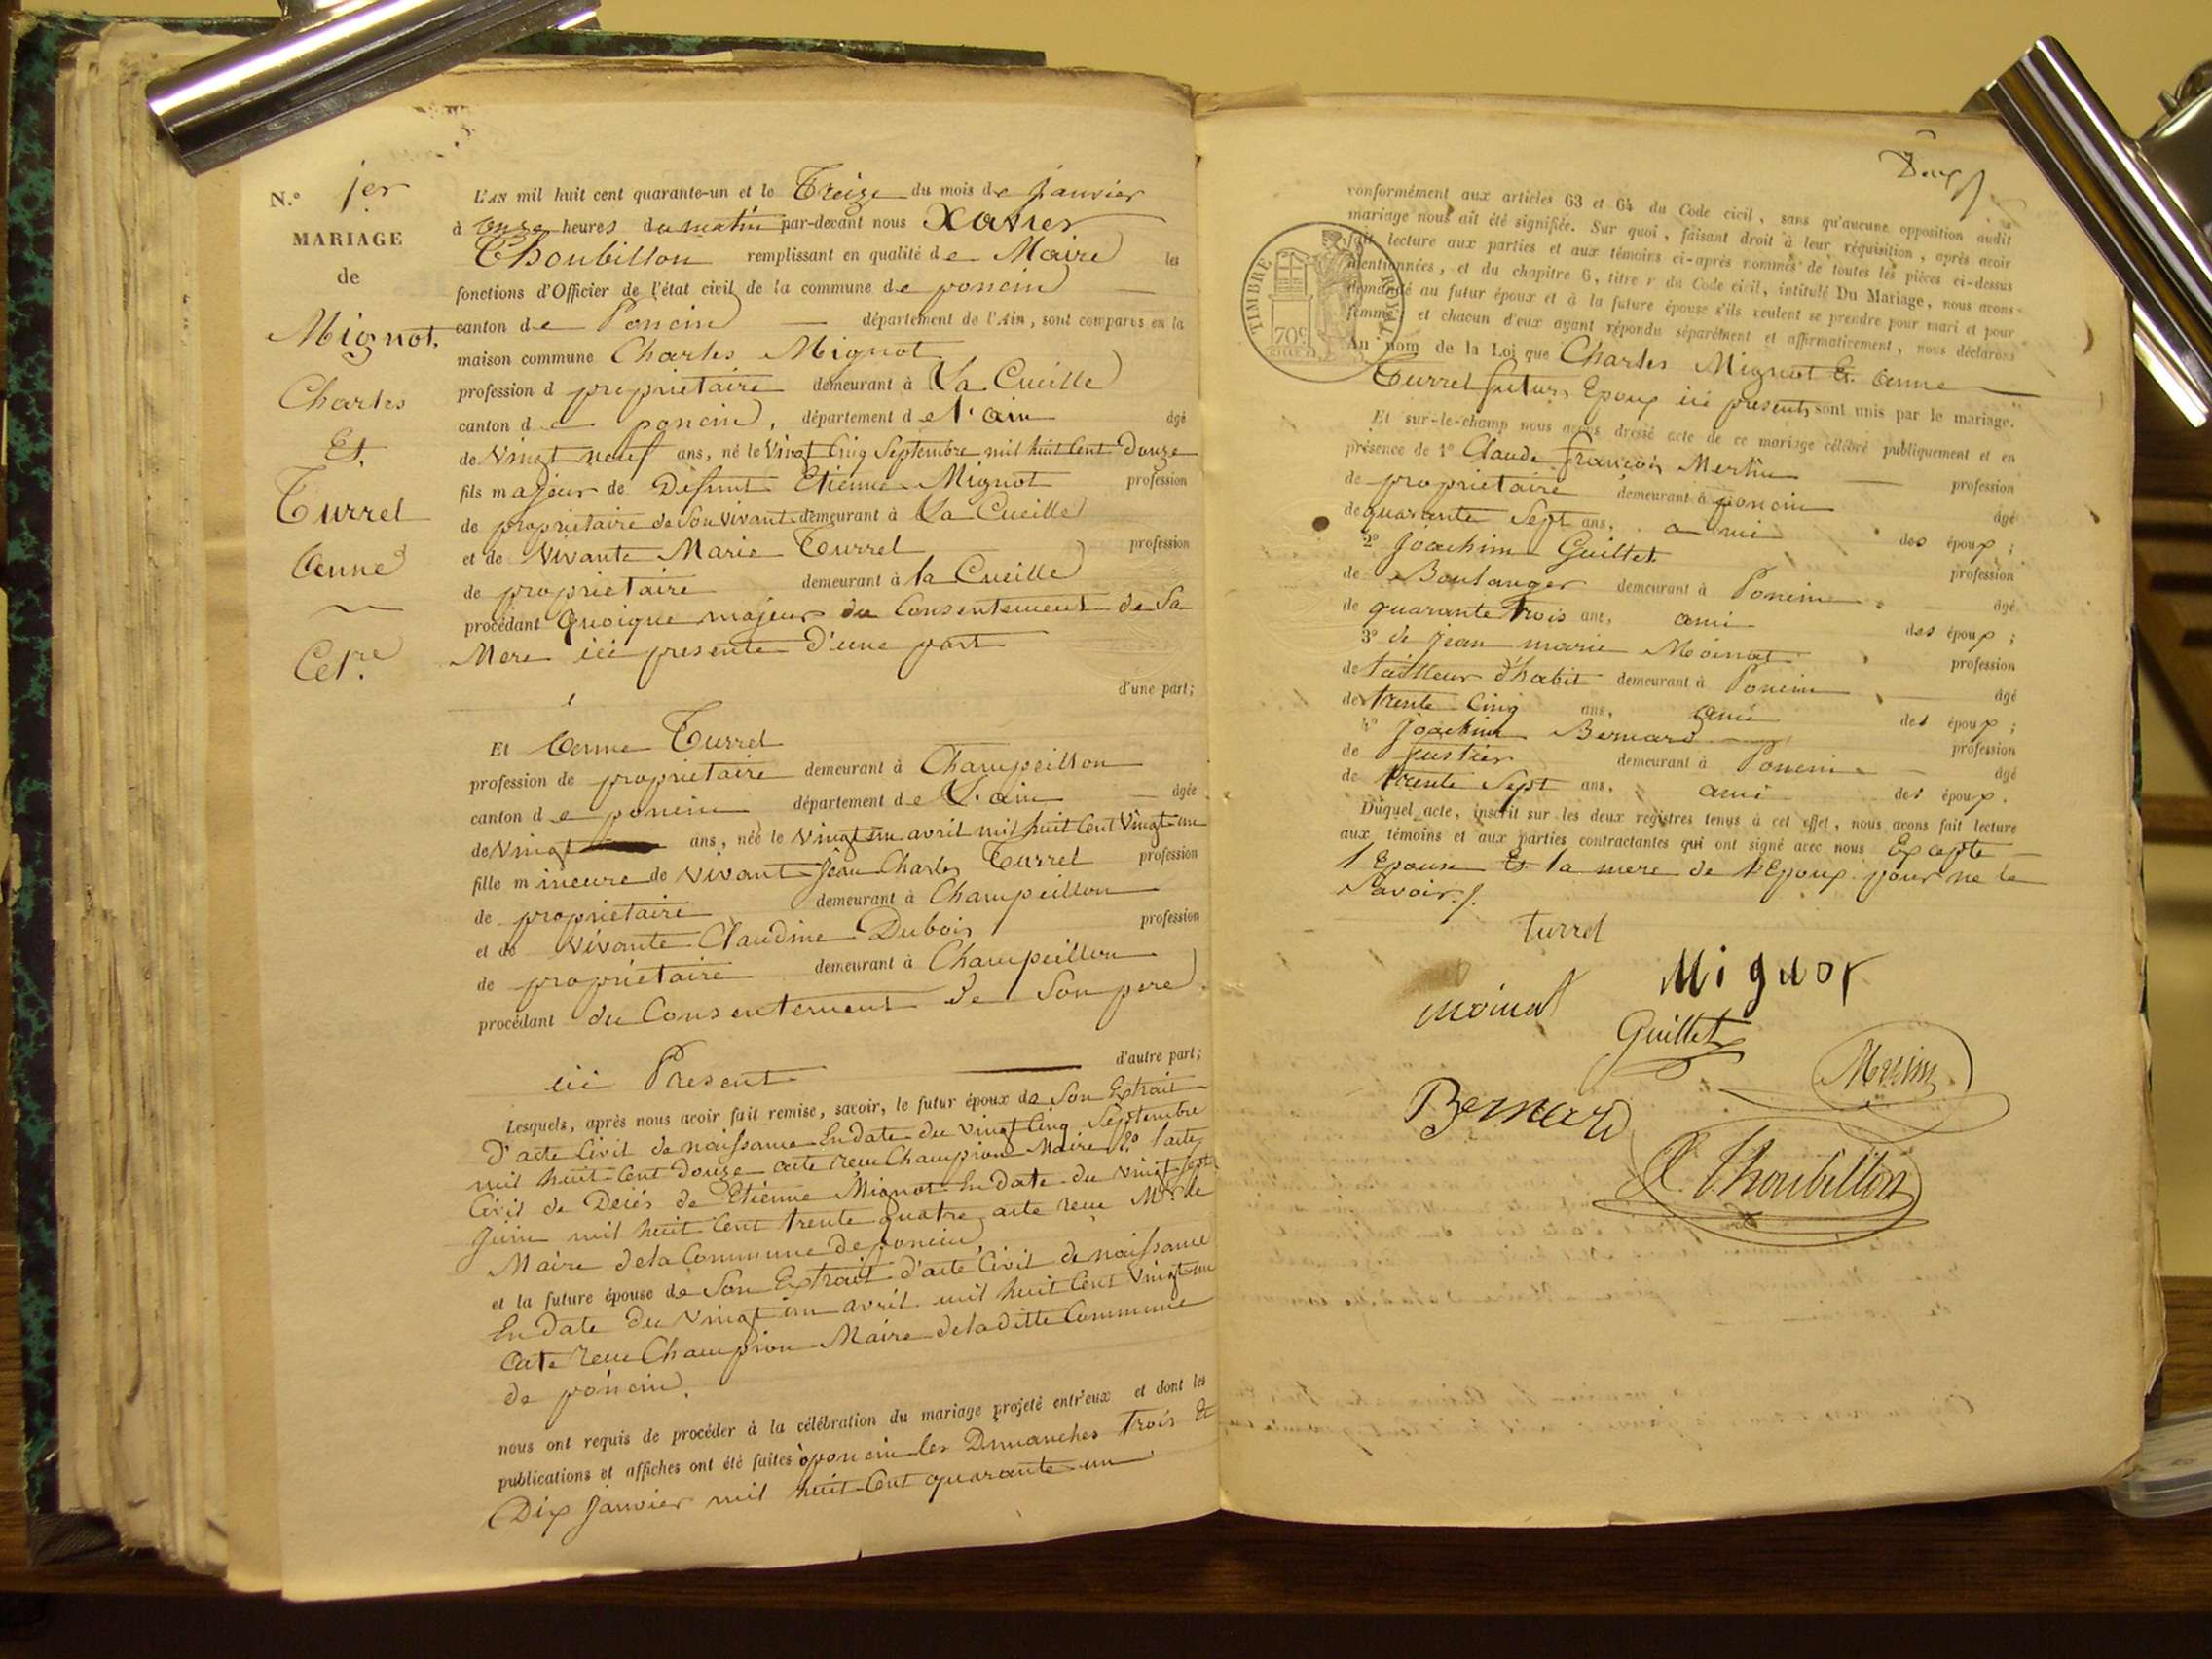 N.º 1er
MARIAGE
de
Mignot.
Charles
Et.
Turrel
Anne
L'AN mil huit cent quarante-un et le Treize du mois de janvier
à onze heures du matin par-devant nous Xavier
Thoubillon remplissant en qualité de Maire les
fonctions d'Officier de l'état civil de la commune de poncin
canton de Poncin département de l'Ain, sont comparus en la
maison commune Charles Mignot
profession d proprietaire demeurant à La Cueille
canton de poncin, département de l'ain âgé
de Vingt neuf ans, né le Vingt Cinq Septembre mil huit Cent Douze
fils majeur de Defunt Etienne Mignot profession
de proprietaire de Son vivant demeurant à La Cueille
et de Vivante Marie Turrel profession
de proprietaire demeurant à la Cueille
procédant Quoique majeur du Consentement de Sa
Mere ici presente D'une part
d'une part;
Et Anne Turrel
profession de proprietaire demeurant à Champeillon
canton de poncin département de L'ain âgée
de Vingt ans, née le Vingt un avril mil huit Cent Vingt un
fille mineure de Vivant Jean Charles Turrel profession
de proprietaire demeurant à Champeillon
et de Vivante Claudine Dubois profession
de proprietaire demeurant à Champeillon
procédant du Consentement de Son pere
ici Present d'autre part;
Lesquels, après nous avoir fait remise, savoir, le futur époux de Son Extrait
D'acte Civil de naissance En date du Vingt Cinq Septembre
mil huit Cent Douze acte reçu Champion Maire 2º l'acte
Civil de Décès de Etienne Mignot En date du Vingt Sept
Juin mil huit Cent trente quatre acte reçu Mr. le
Maire de la Commune de poncin
et la future épouse de Son Extrait d'acte Civil de naissance
En date du Vingt un avril mil huit Cent Vingt un
acte reçu Champion Maire de la ditte Commune
de poncin.
nous ont requis de procéder à la célébration du mariage projeté entr'eux et dont les
publications et affiches ont été faites à poncin les Dimanches trois Et
Dix Janvier mil huit Cent quarante un
Deux
conformément aux articles 63 et 64 du Code civil, sans qu'aucune opposition audit
mariage nous ait été signifiée. Sur quoi, faisant droit à leur réquisition, après avoir
fait lecture aux parties et aux témoins ci-après nommés de toutes les pièces ci-dessus
mentionnées, et du chapitre 6, titre v du Code civil, intitulé Du Mariage, nous avons
demandé au futur époux et à la future épouse s'ils veulent se prendre pour mari et pour
femme; et chacun d'eux ayant répondu séparément et affirmativement, nous déclarons
Au nom de la Loi que Charles Mignot Et Anne
Turrel futurs Epoux ici presents sont unis par le mariage.
TIMBRE ROYAL
70c
Et sur-le-champ nous avons dressé acte de ce mariage célébré publiquement et en
présence de 1º Claude françois Merlin profession
de proprietaire demeurant à poncin âgé
de quarante Sept ans, ami des époux;
2º Joachim Guillet profession
de Boulanger demeurant à Poncin âgé
de quarante Trois ans, ami des époux;
3º de Jean marie Moinat profession
de tailleur d'habit demeurant à Poncin âgé
de trente Cinq ans, ami des époux;
4º Joachim Bernard profession
de demeurant à Poncin âgé
de trente Sept ans, ami des époux.
Duquel acte, inscrit sur les deux registres tenus à cet effet, nous avons fait lecture
aux témoins et aux parties contractantes qui ont signé avec nous Excepté
l'Epouse Et la mere de l'Epoux pour ne le
Savoir
Turrel
Mignot
Moinat
Guillet
Merlin
Bernard
X. Thoubillon